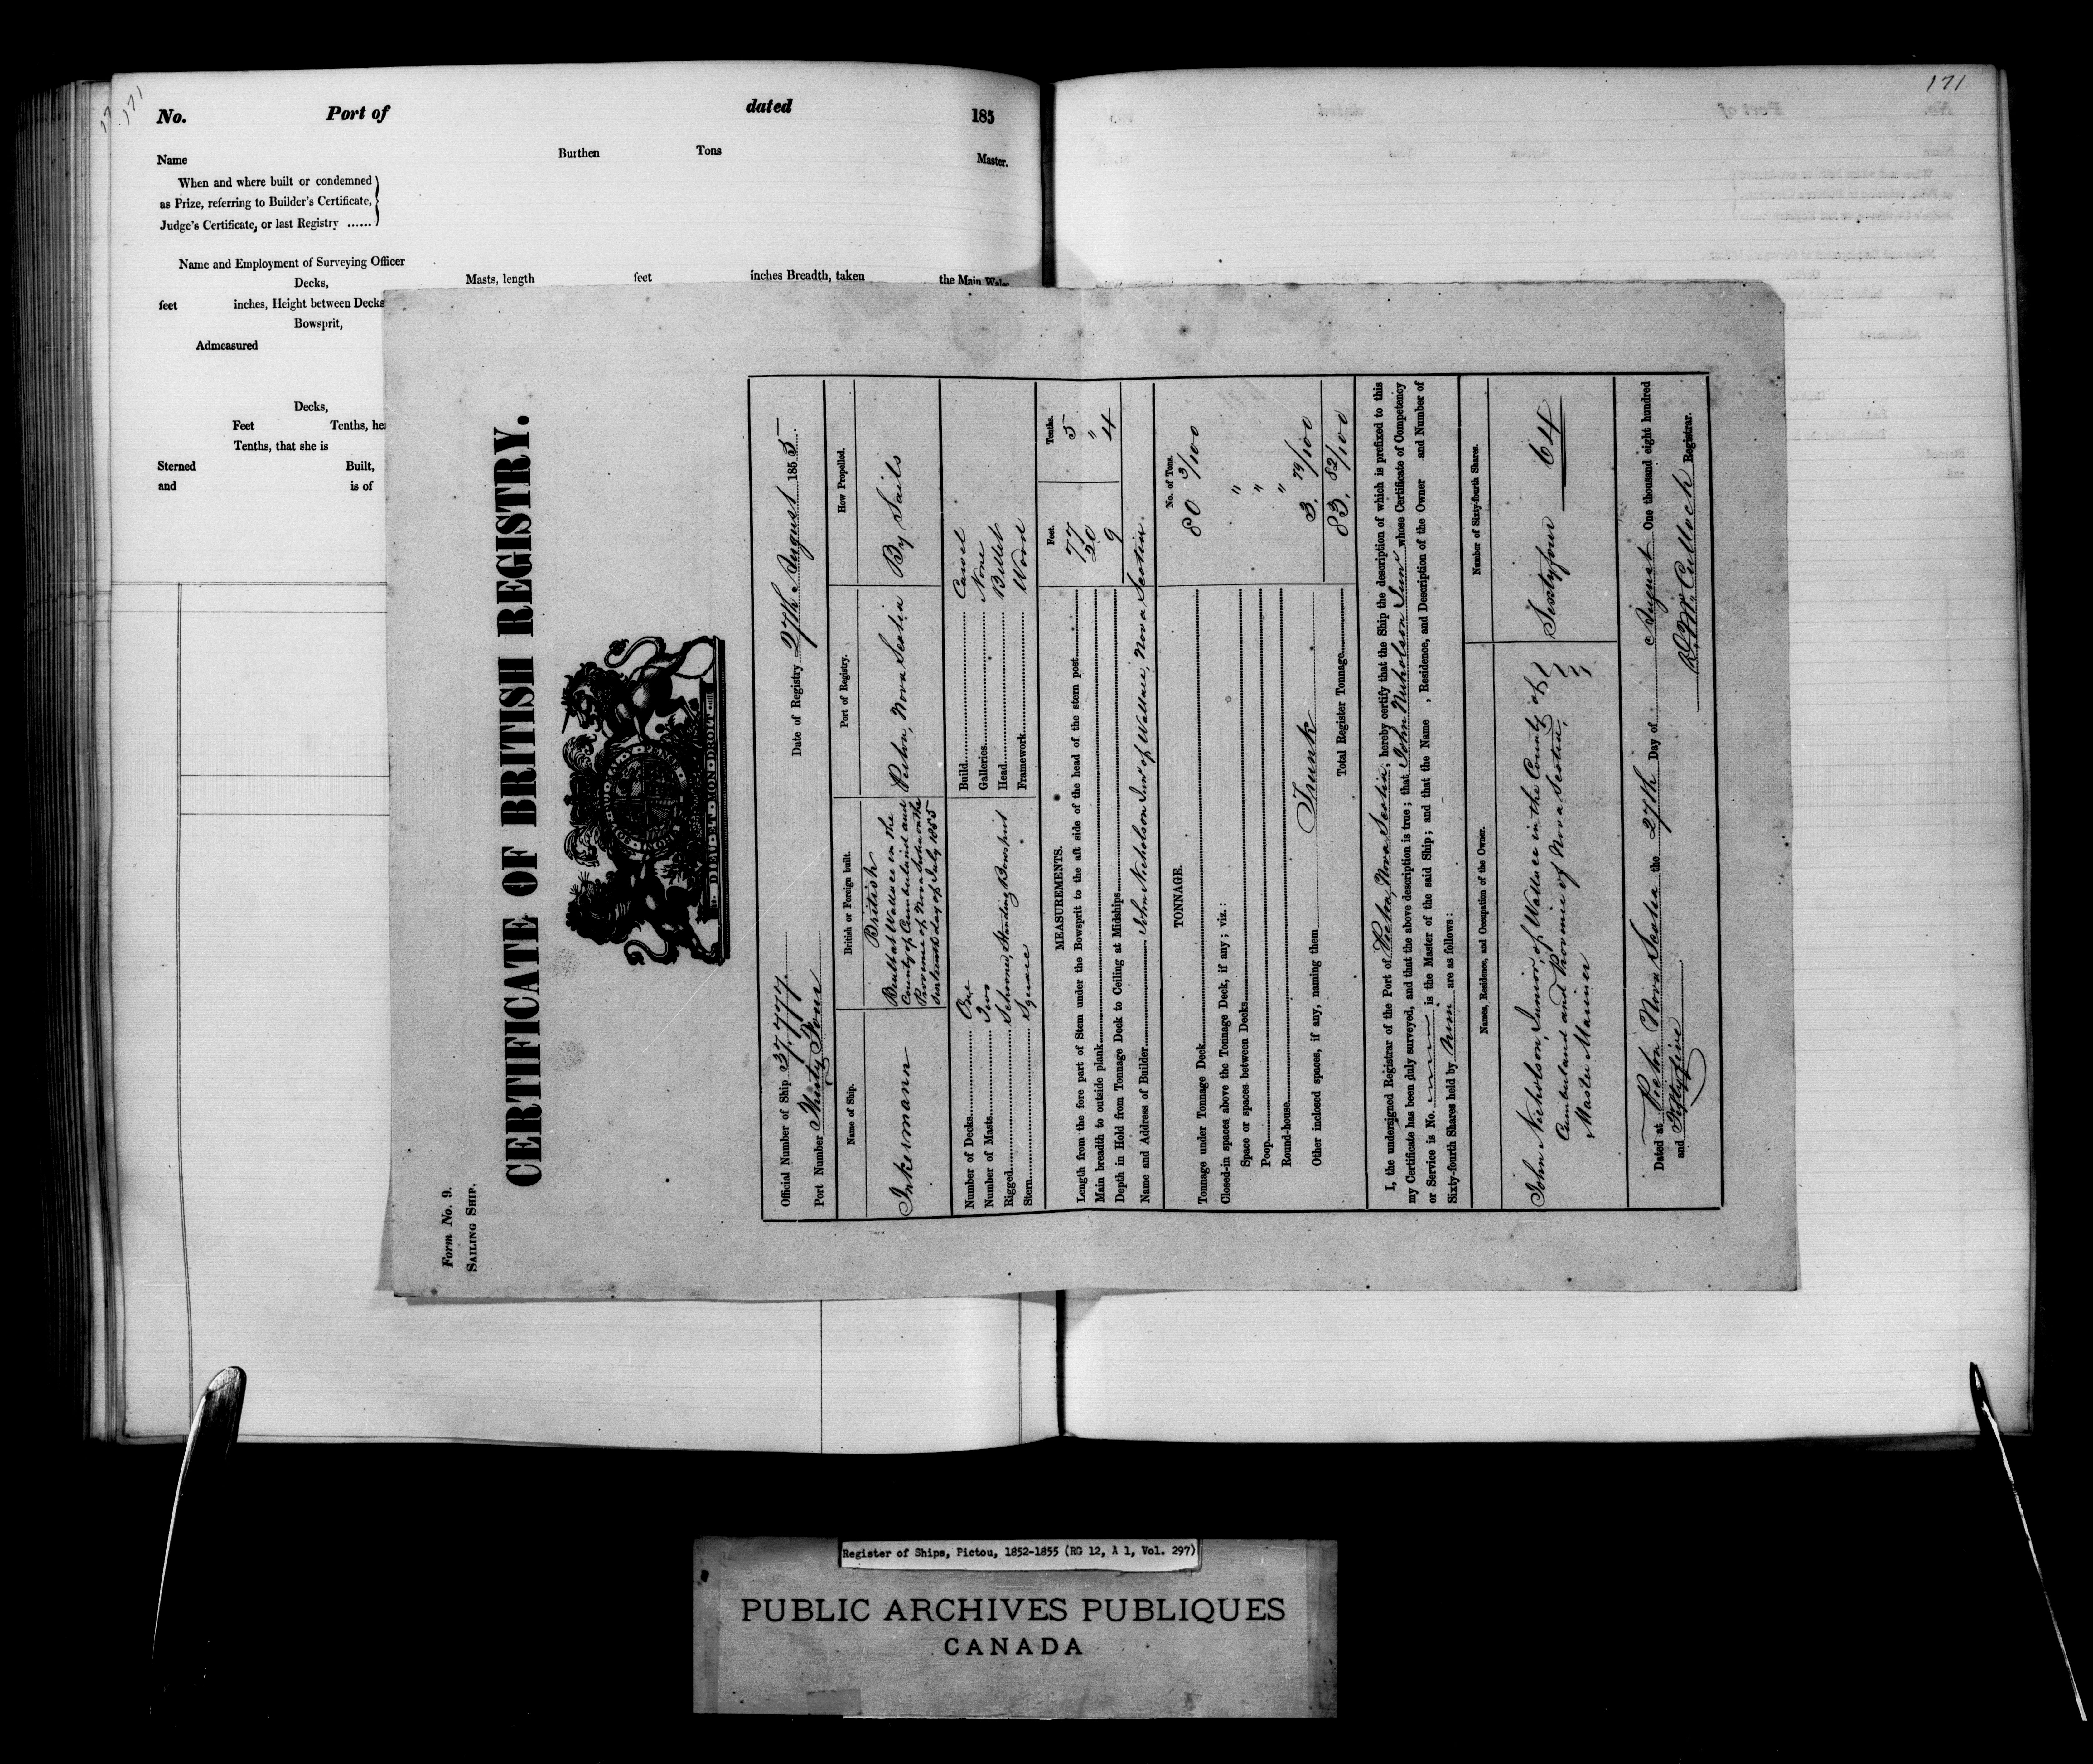 17 171
No. Port of dated 185
Name Burthen Tons Master.
When and where built or condemned
as Prize, referring to Builder's Certificate,
Judge's Certificate, or last Registry ......
Name and Employment of Surveying Officer
Decks, Masts, length feet inches Breadth, taken the Main Wales
feet inches, Height between Decks
Bowsprit,
Admeasured
Decks,
Feet Tenths,
Tenths, that she is
Sterned Built,
and is of
171
Form No. 9.
SAILING SHIP.
CERTIFICATE OF BRITISH REGISTRY.
DIEU·ET·MON·DROIT
Official Number of Ship 37,777. Date of Registry 27th August 1855.
Port Number Thirty Four
Name of Ship. British or Foreign built. Port of Registry. How Propelled.
Inkermann
British
Built at Wallace in the
County of Cumberland and
Province of Nova Scotia on the
day of July 1855
Pictou, Nova Scotia
By Sails
Number of Decks One Build Carvel
Number of Masts Two Galleries None
Rigged Schooner, Standing Bowsprit Head Billet
Stern Square Framework Wood
MEASUREMENTS. Feet. Tenths.
Length from the fore part of Stem under the Bowsprit to the aft side of the head of the stern post 77 5
Main breadth to outside plank 20 "
Depth in Hold from Tonnage Deck to Ceiling at Midships 9 4
Name and Address of Builder John Nicholson Junr of Wallace, Nova Scotia.
TONNAGE. No. of Tons.
Tonnage under Tonnage Deck 80 3/100
Closed-in spaces above the Tonnage Deck, if any; viz.:
Space or spaces between Decks "
Poop "
Round-house "
Other inclosed spaces, if any, naming them Trunk 3. 79/100
Total Register Tonnage 83. 82/100
I, the undersigned Registrar of the Port of Pictou, Nova Scotia, hereby certify that the Ship the description of which is prefixed to this
my Certificate has been duly surveyed, and that the above description is true; that John Nicholson Junr whose Certificate of Competency
or Service is No. is the Master of the said Ship; and that the Name , Residence, and Description of the Owner and Number of
Sixty-fourth Shares held by him are as follows:
Names, Residence, and Occupation of the Owner. Number of Sixty-fourth Shares.
John Nicholson, Junior, of Wallace in the County of
Cumberland and Province of Nova Scotia,
Master Mariner
Sixtyfour 64
Dated at Pictou Nova Scotia the 27th Day of August One thousand eight hundred
and Fiftyfive
McCulloch Registrar.
Register of Ships, Pictou, 1852-1855 (RG 12, A 1, Vol. 297)
PUBLIC ARCHIVES PUBLIQUES
CANADA